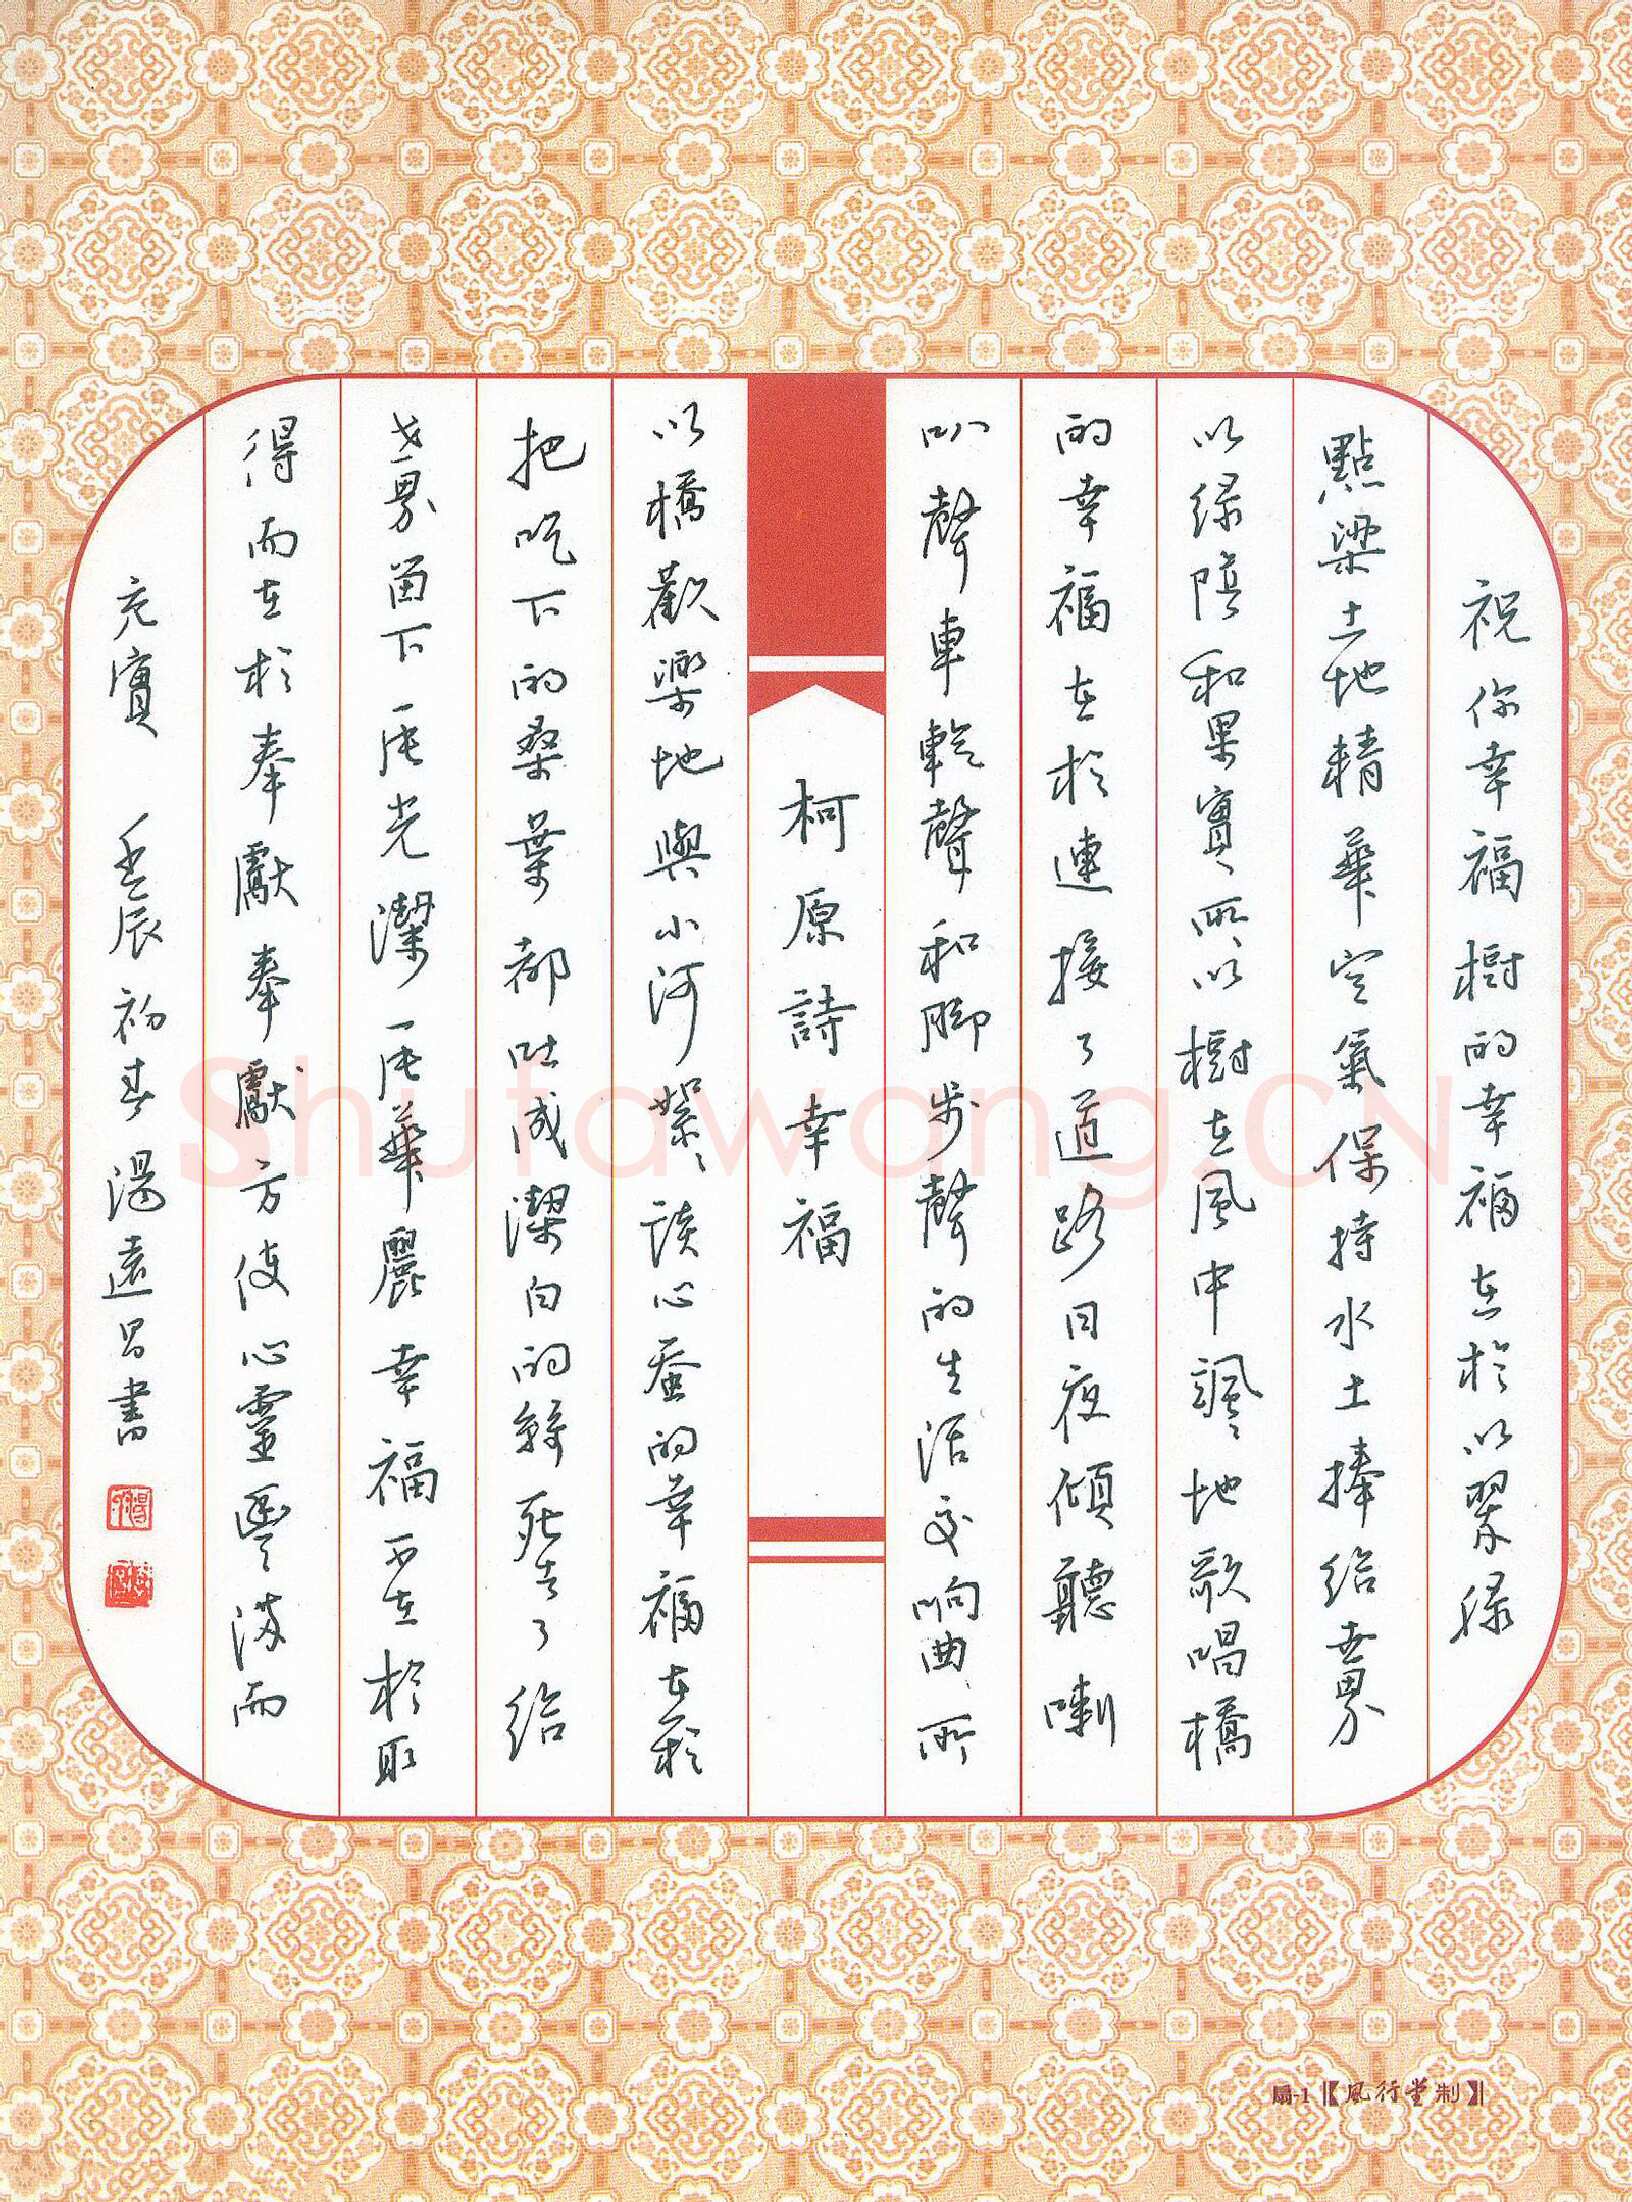 祝你幸福樹的幸福在於以翠绿
點染土地精華空氣保持水土捧給世界
以绿蔭和果實所以樹在風中飒飒地歌唱橋
的幸福在於連接了道路日夜傾聽喇
叭聲車輪聲和脚步聲的生活交响曲所
柯原詩幸福
以橋歡樂地與小河絮絮談心蚕的幸福在於
把吃下的桑葉都吐成潔白的絲死去了給
世界留下一片光潔一片華麗幸福不在於取
得而在於奉獻奉獻方使心靈豐滿而
充實 壬辰初春湯遠昌書
扇-1【風行堂制】
Shufawang.CN